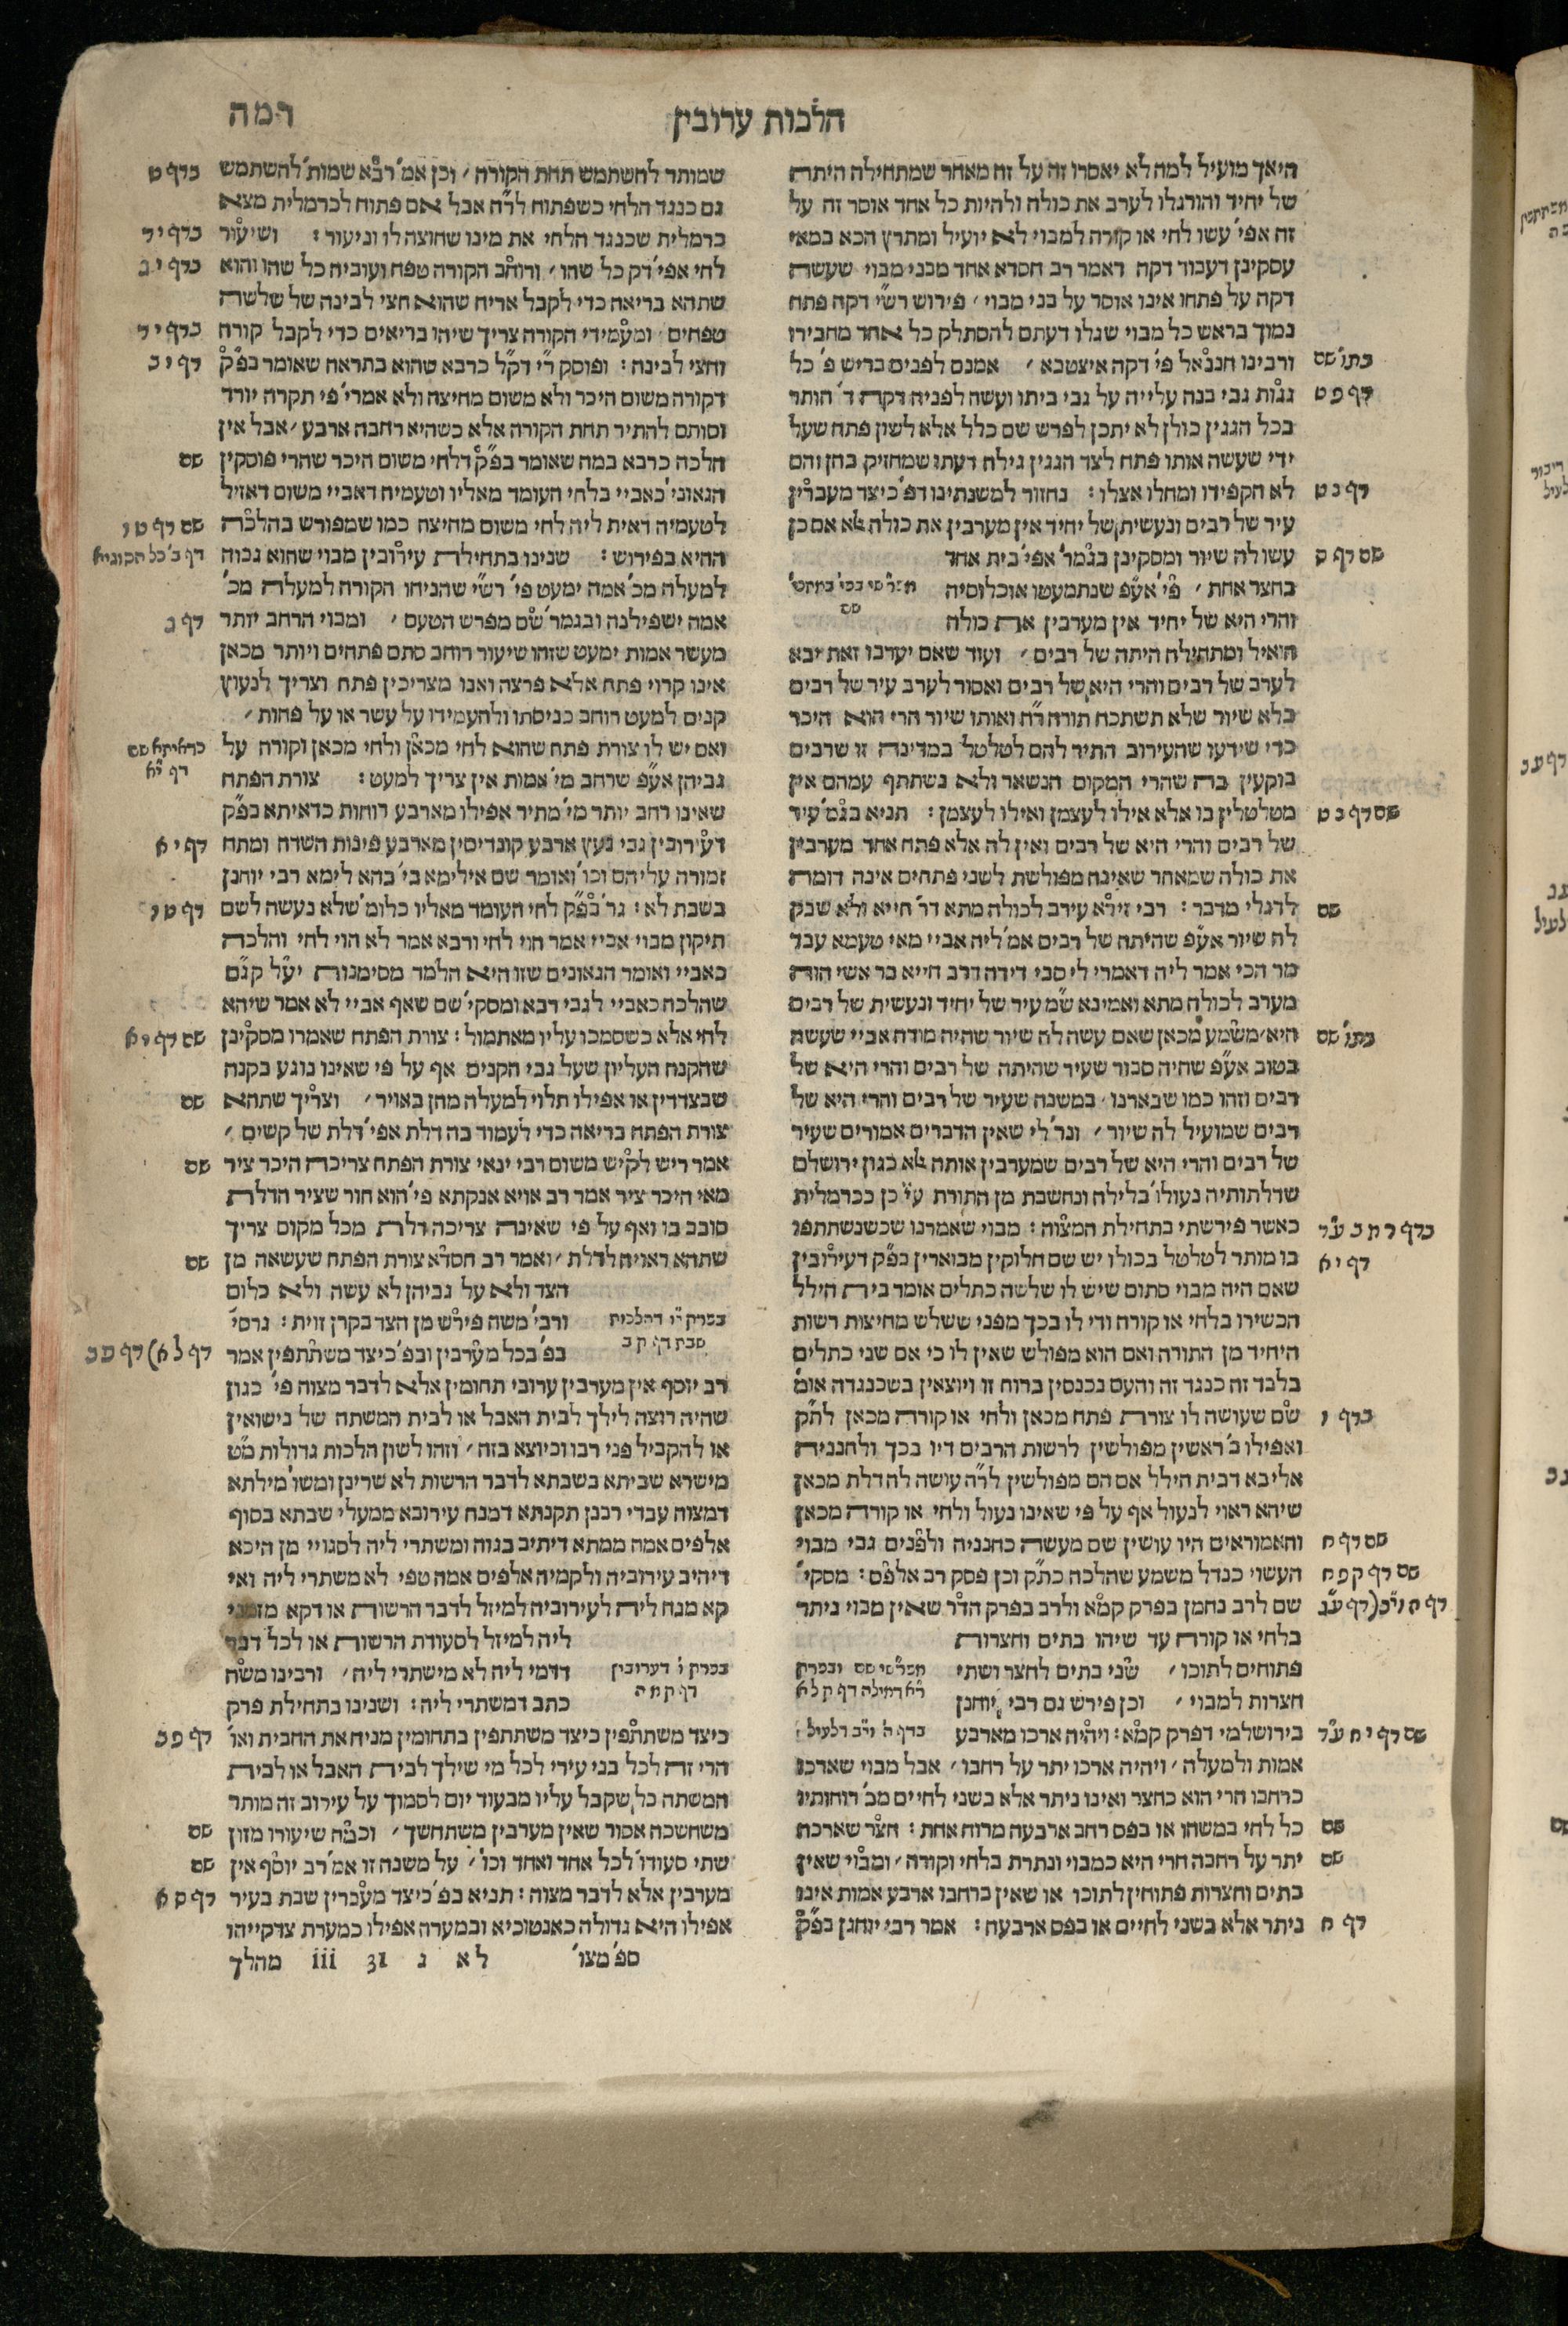 הלכות ערובין
רמה
היאך מועיל למה לא יאסרו זה על זה מאחר שמתחילה היתה
של יחיד והורגלו לערב את כולה ולהיות כל אחד אוסר זה על
זה אפי' עשו לחי או קורה למבוי לא יועיל ומתרץ הכא במאי
עסקינן דעבוד דקה דאמר רב חסדא אחד מבני מבוי שעשה
דקה על פתחו אינו אוסר על בני מבוי׳ פירוש רש״י דקה פתח
נמוך בראש כל מבוי שגלו דעתם להסתלק כל אחד מחבירו
ורבינו חננאל פי' דקה איצטבא׳ אמנם לפנים בריש פ' כל
גגות גבי בנה עלייה על גבי ביתו ועשה לפניה דקה ד' הותר
בכל הגגין כולן לא יתכן לפרש שם כלל אלא לשון פתח שעל
ידי שעשה אותו פתח לצד הגגין גילה דעתו שמחזיק בהן והם
לא הקפידו ומחלו אצלו: נחזור למשנתינו דפ' כיצד מעברין
עיר של רבים ונעשית של יחיד אין מערבין את כולה אלא אם כן
עשו לה שיור ומסקינן בגמר' אפי' בית אחד
בחצר אחת׳ פי' אע״פ שנתמעטו אוכלוסיה
והרי היא של יחיד אין מערבין את כולה
הואיל ומתחילה היתה של רבים׳ ועוד שאם יערבו זאת יבא
לערב של רבים והרי היא של רבים ואסור לערב עיר של רבים
בלא שיור שלא תשתכח תורת ר״ה ואותו שיור הרי הוא היכר
כדי שידעו שהעירוב התיר להם לטלטל במדינה זו שרבים
בוקעין בה שהרי המקום הנשאר ולא נשתתף עמהם אין
מטלטלין בו אלא אילו לעצמן ואילו לעצמן: תניא בגמ' עיר
של רבים והרי היא של רבים ואין לה אלא פתח אחד מערבין
את כולה שמאחר שאינה מפולשת לשני פתחים אינה דומה
לדגלי מדבר: רבי זירא עירב לכולה מתא דר' חייא ולא שבק
לה שיור אע״פ שהיתה של רבים אמ' ליה אביי מאי טעמא עבד
מר הכי אמר ליה דאמרי לי סבי דידה דרב חייא בר אשי הוה
מערב לכולה מתא ואמינא ש״מ עיר של יחיד ונעשית של רבים
היא׳ משמע מכאן שאם עשה לה שיור שהיה מודה אביי שעשה
בטוב אע״פ שהיה סבור שעיר שהיתה של רבים והרי היא של
רבים וזהו כמו שבארנו׳ במשנה שעיר של רבים והרי היא של
רבים שמועיל לה שיור׳ ונר' לי שאין הדברים אמורים שעיר
של רבים והרי היא של רבים שמערבין אותה אלא כגון ירושלם
שדלתותיה נעולו' בלילה ונחשבת מן התורת ע״י כן ככרמלית
כאשר פירשתי בתחילת המצוה: מבוי שאמרנו שכשנשתתפו
בו מותר לטלטל בכולו יש שם חלוקין מבוארין בפ״ק דעירובין
שאם היה מבוי סתום שיש לו שלשה כתלים אומר בית הילל
הכשירו בלחי או קורה ודי לו בכך מפני ששלש מחיצות רשות
היחיד מן התורה ואם הוא מפולש שאין לו כי אם שני כתלים
בלבד זה כנגד זה והעם נכנסין ברוח זו ויוצאין בשכנגדה אומ'
שם שעושה לו צורת פתח מכאן ולחי או קורה מכאן לת״ק
ואפילו ב' ראשין מפולשין לרשות הרבים דיו בכך ולחנניה
אליבא דבית הילל אם הם מפולשין לר״ה עושה לה דלת מכאן
שיהא ראוי לנעול אף על פי שאינו נעול ולחי או קורה מכאן
והאמוראים היו עושין שם מעשה כחנניה ולפנים גבי מבוי
העשוי כנדל משמע שהלכה כת״ק וכן פסק רב אלפס: מסקי'
שם לרב נחמן בפרק קמא ולרב בפרק הדר שאין מבוי ניתר
בלחי או קורה עד שיהו בתים וחצרות
פתוחים לתוכו׳ שני בתים לחצר ושתי
חצרות למבוי׳ וכן פירש גם רבי יוחנן
בירושלמי דפרק קמא: ויהיה ארכו מארבע
אמות ולמעלה׳ ויהיה ארכו יתר על רחבו׳ אבל מבוי שארכו
כרחבו הרי הוא כחצר ואינו ניתר אלא בשני לחיים מב' רוחותיו
כל לחי במשהו או בפס רחב ארבעה מרוח אחת: חצר שארכה
יתר על רחבה הרי היא כמבוי ונתרת בלחי וקורה׳ ומבוי שאין
בתים וחצרות פתוחין לתוכו או שאין ברחבו ארבע אמות אינו
ניתר אלא בשני לחיים או בפס ארבעה: אמר רבי יוחנן בפ״ק
בתו' שם
דף פט
דף נט
שם דף ס
שם דף נט
שם
בתו' שם
דף יא
בדף ו
שם דף ח
שם דף קפח
שם דף יח ע״ד
שם
שם
דף ח
שמותר להשתמש תחת הקורה׳ וכן אמ' רבא שמות' להשתמש
גם כנגד הלחי כשפתוח לר״ה אבל אם פתוח לכרמלית מצא
כרמלית שכנגד הלחי את מינו שחוצה לו וניעור: ושיעור
לחי אפי' דק כל שהו׳ ורוחב הקורה טפח ועוביה כל שהו והוא
שתהא בריאה כדי לקבל אריח שהוא חצי לבינה של שלשה
טפחים ומעמידי הקורה צריך שיהו בריאים כדי לקבל קורה
וחצי לבינה: ופוסק ר״י דק״ל כרבא שהוא בתראה שאומר בפ״ק
דקורה משום היכר ולא משום מחיצה ולא אמרי' פי תקרה יורד
וסותם להתיר תחת הקורה אלא כשהיא רחבה ארבע׳ אבל אין
הלכה כרבא במה שאומר בפ״ק דלחי משום היכר שהרי פוסקין
הגאוני' כאביי בלחי העומד מאליו וטעמיה דאביי משום דאזיל
לטעמיה דאית ליה לחי משום מחיצה כמו שמפורש בהלכה
ההיא בפירוש: שנינו בתחילת עירובין מבוי שהוא גבוה
למעלה מכ' אמה ימעט פי' רש״י שהניחו הקורה למעלה מכ'
אמה ישפילנה ובגמר' שם מפרש הטעם׳ ומבוי הרחב יותר
מעשר אמות ימעט שזהו שיעור רוחב סתם פתחים ויותר מכאן
אינו קרוי פתח אלא פרצה ואנו מצריכין פתח וצריך לנעוץ
קנים למעט רוחב כניסתו ולהעמידו על עשר או על פחות׳
ואם יש לו צורת פתח שהוא לחי מכאן ולחי מכאן וקורה על
גביהן אע״פ שרחב מי' אמות אין צריך למעט: צורת הפתח
שאינו רחב יותר מי' מתיר אפילו מארבע רוחות כדאיתא בפ״ק
דעירובין גבי נעץ ארבע קונדיסין מארבע פינות השדה ומתח
זמורה עליהם וכו' ואומר שם אילימא בי' בהא לימא רבי יוחנן
בשבת לא: גר' בפ״ק לחי העומד מאליו כלומ' שלא נעשה לשם
תיקון מבוי אביי אמר הוי לחי ורבא אמר לא הוי לחי והלכה
כאביי ואומר הגאונים שזו היא הלמד מסימנות יע״ל קג״ם
שהלכה כאביי לגבי רבא ומסקי' שם שאף אביי לא אמר שיהא
לחי אלא כשסמכו עליו מאתמול: צורת הפתח שאמרו מסקינן
שהקנה העליון שעל גבי הקנים אף על פי שאינו נוגע בקנה
שבצדדין או אפילו תלוי למעלה מהן באויר׳ וצריך שתהא
צורת הפתח בריאה כדי לעמוד בה דלת אפי' דלת של קשים׳
אמר ריש לקיש משום רבי ינאי צורת הפתח צריכה היכר ציר
מאי היכר ציר אמר רב אויא אנקתא פי' הוא חור שציר הדלת
סובב בו ואף על פי שאינה צריכה דלת מכל מקום צריך
שתהא ראויה לדלת׳ ואמר רב חסדא צורת הפתח שעשאה מן
הצד ולא על גביהן לא עשה ולא כלום
ורבי' משה פירש מן הצד בקרן זוית: גרסי'
בפ' בכל מערבין ובפ' כיצד משתתפין אמר
רב יוסף אין מערבין ערובי תחומין אלא לדבר מצוה פי' כגון
שהיה רוצה לילך לבית האבל או לבית המשתה של נישואין
או להקביל פני רבו וכיוצא בזה׳ וזהו לשון הלכות גדולות מ״ט
מישרא שביתא בשבתא לדבר הרשות לא שרינן ומשו' מילתא
דמצוה עבדי רבנן תקנתא דמנח עירובא ממעלי שבתא בסוף
אלפים אמה ממתא דיתיב בגוה ומשתרי ליה לסגויי מן היכא
דיהיב עירוביה ולקמיה אלפים אמה טפי לא משתרי ליה ואי
קא מנח ליה לעירוביה למיזל לדבר הרשות או דקא מזמני
ליה למיזל לסעודת הרשות או לכל דבר
דדמי ליה לא מישתרי ליה׳ ורבינו משה
כתב דמשתרי ליה: ושנינו בתחילת פרק
כיצד משתתפין כיצד משתתפין בתחומין מניח את החבית ואו'
הרי זה לכל בני עירי לכל מי שילך לבית האבל או לבית
המשתה כל שקבל עליו מבעוד יום לסמוך על עירוב זה מותר
משחשכה אסור שאין מערבין משתחשך׳ וכמה שיעורו מזון
שתי סעודו' לכל אחד ואחד וכו'׳ על משנה זו אמ' רב יוסף אין
מערבין אלא לדבר מצוה: תניא בפ' כיצד מעברין שבת בעיר
אפילו היא גדולה כאנטוכיא ובמערה אפילו כמערת צדקייהו
בדף ט
בדף יד
בדף יג
בדף יד
דף יב
שם
שם דף טו
דף ב' כל הסוגיא
דף ב
כדאיתא שם
דף י״א
דף יא
דף טו
שם דף יא
שם
שם
שם
בפרק י״ו דהלכות
שבת דף קב
דף לא) דף עב
בפרק ו' דערובין
דף קמה
דף פב
שם
שם
דף סא
ספ' מצו' לא ג 31 iii מהלך